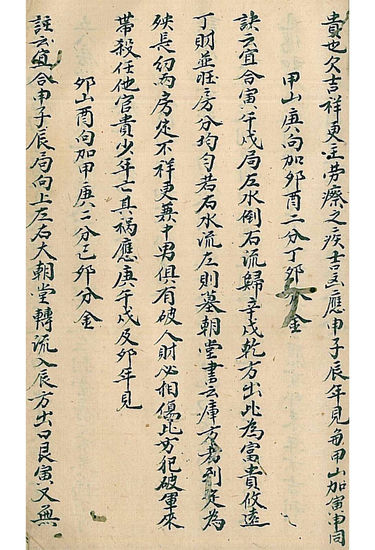 貴也久吉祥更主劳瘵之疾吉凶應申子辰年見每甲山加寅申同
甲山庚向加卯酉二分丁卯分金
訣云宜合寅午戌局左水倒右流歸辛戌乾方出此為富貴攸遠
丁財並旺房分均匀若右水流左則墓朝堂書云庫方若到定為
殃長幼两房定不祥更兼十男俱有破人財必相傷此方犯破軍來
帶殺任他官貴少年亡其禍應庚午戌及卯年見
卯山酉向加甲庚二分己卯分金
註云宜合申子辰局向上左右大朝堂轉流入辰方出口艮寅又無